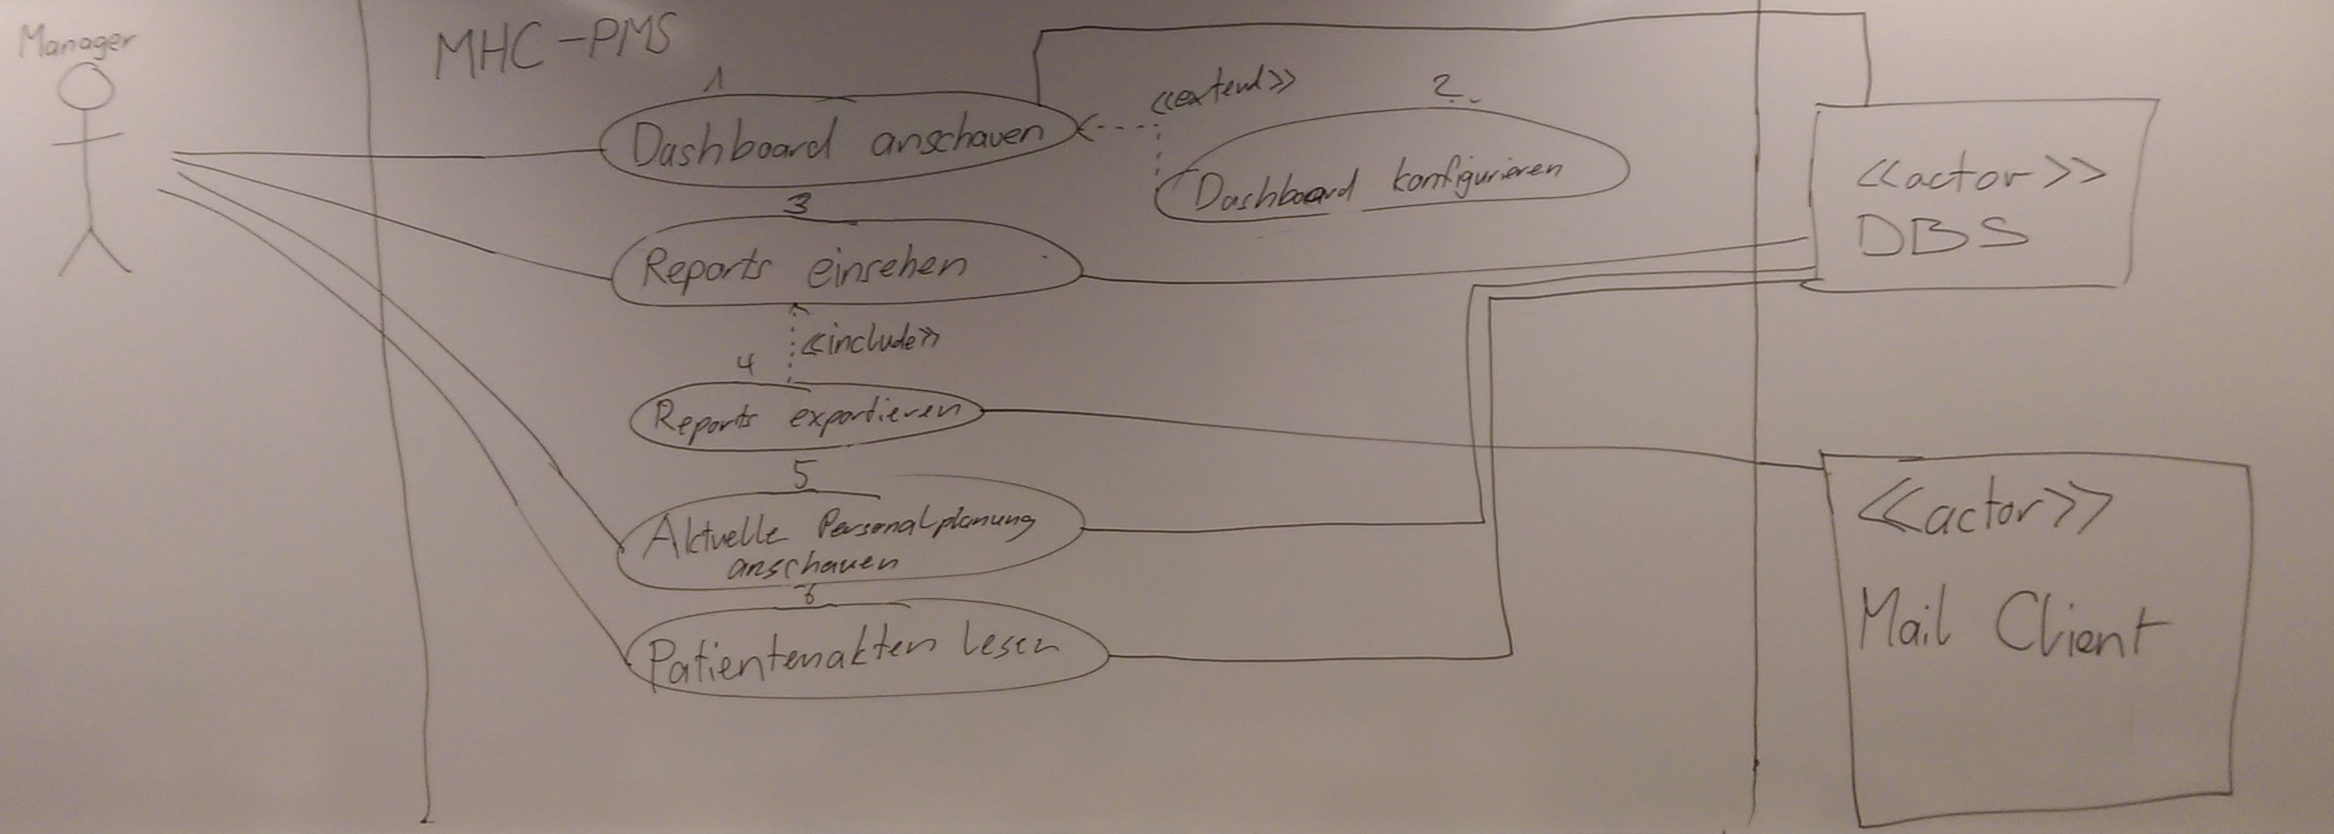 Manager
MHC-PMS
1
Dashboard anschauen
<<extend>>
2
Dashboard konfigurieren
3
Reports einsehen
<<include>>
4
Reports exportieren
5
Aktuelle Personalplanung
anschauen
6
Patientenakten lesen
<<actor>>
DBS
<<actor>>
Mail Client